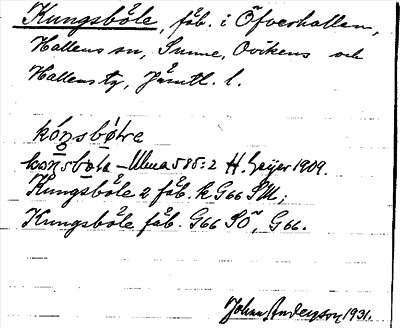 Kungsböle, fåb. i Öfverhallen,
Hallens sn, Sunne, Ovikens och
Hallens tg, Jämtl. l.
kóŋsbø̀tre
– Ulma 585:2 H. Geijer 1909.
Kungsböle 2 fåb. k G66 SM;
Kungsböle fåb. G66 SÖ, G66.
Johan Anderson 1931.